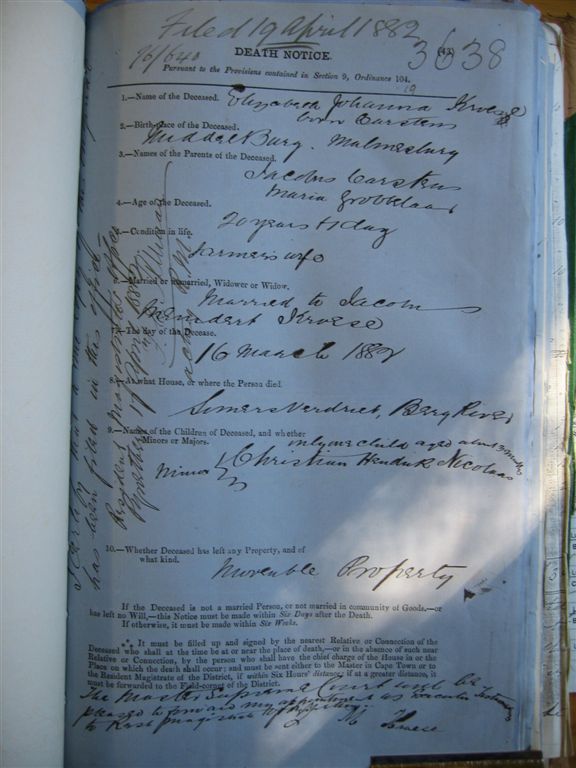 Filed 19 April 1882
3638
76/640 DEATH NOTICE. (42)
Pursuant to the Provisions contained in Section 9, Ordinance 104.
19
1.—Name of the Deceased. Elizabeth Johanna Kroese
born Carstens
2.—Birth-place of the Deceased.
Middel Burg. Malmesbury
3.—Names of the Parents of the Deceased.
Jacobus Carstens
Maria
4.—Age of the Deceased.
20 years & 1 day
5.—Condition in life.
Farmers wife
6.—Married or unmarried, Widower or Widow.
Married to Jacobus
Meindert Kroese
7.—The day of the Decease.
16 March 1882
8.—At what House, or where the Person died
Somers Verdriet, Berg River
9.—Names of the Children of Deceased, and whether
Minors or Majors.
only one child aged about 3 months
Minor Christian Hendrik Nicolaas
10.—Whether Deceased has left any Property, and of
what kind.
Moveable Property
If the Deceased is not a married Person, or not married in community of Goods.—or
has left no Will,—this Notice must be made within Six Days after the Death.
If otherwise, it must be made within Six Weeks.
*** It must be filled up and signed by the nearest Relative or Connection of the
Deceased who shall at the time be at or near the place of death,—or in the absence of such near
Relative or Connection, by the person who shall have the chief charge of the House in or the
Place on which the death shall occur; and must be sent either to the Master in Cape Town or to
the Resident Magistrate of the District, if within Six Hours' distance; if at a greater distance, it
must be forwarded to the Field-cornet of the District.
The Master Supreme Court will be
pleased to forward my appointment as Executor Testamentary
to Resdt Magistrate
I certify that a true copy of the original
has been filed in this office
Resident Magistrate's Office
April 1882